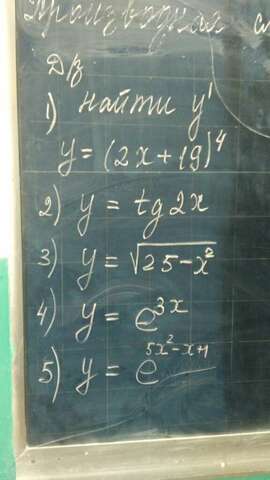 Производная
Д/з
1) найти y'
y = (2x+19)⁴
2) y = tg2x
3) y = √25-x²
4) y = e³ˣ
5) y = e^5x²-x+1